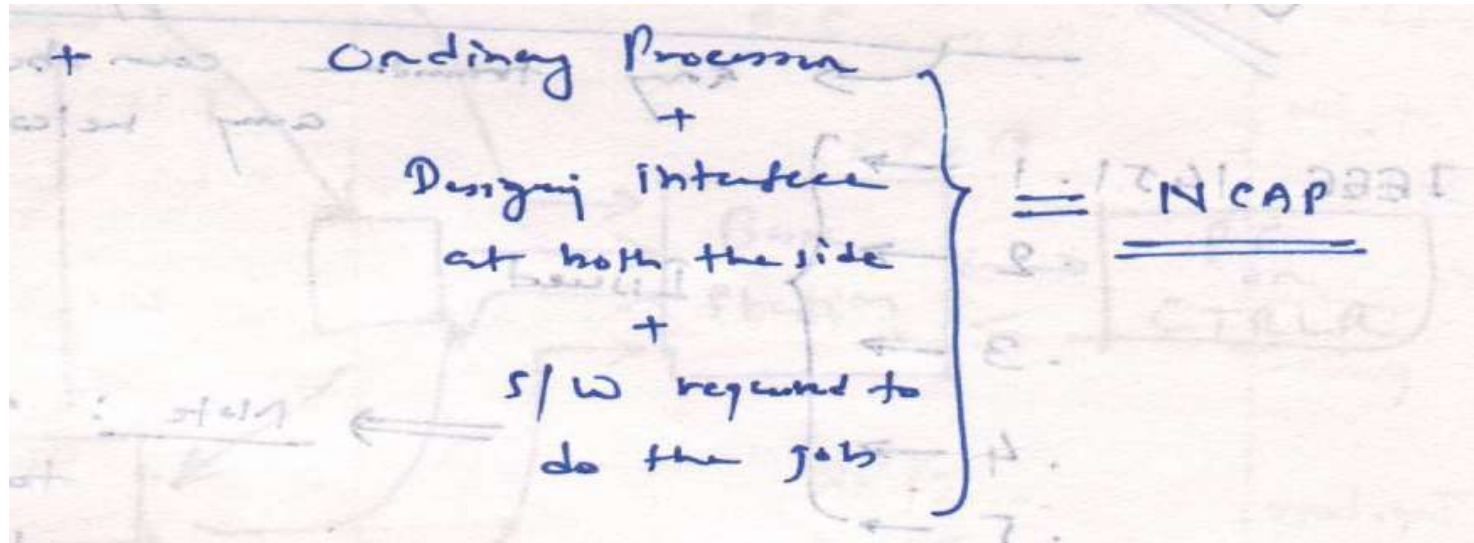 + Ordinary Processor
+
Designing interface
at both the side
+
S/W required to
do the job
= NCAP